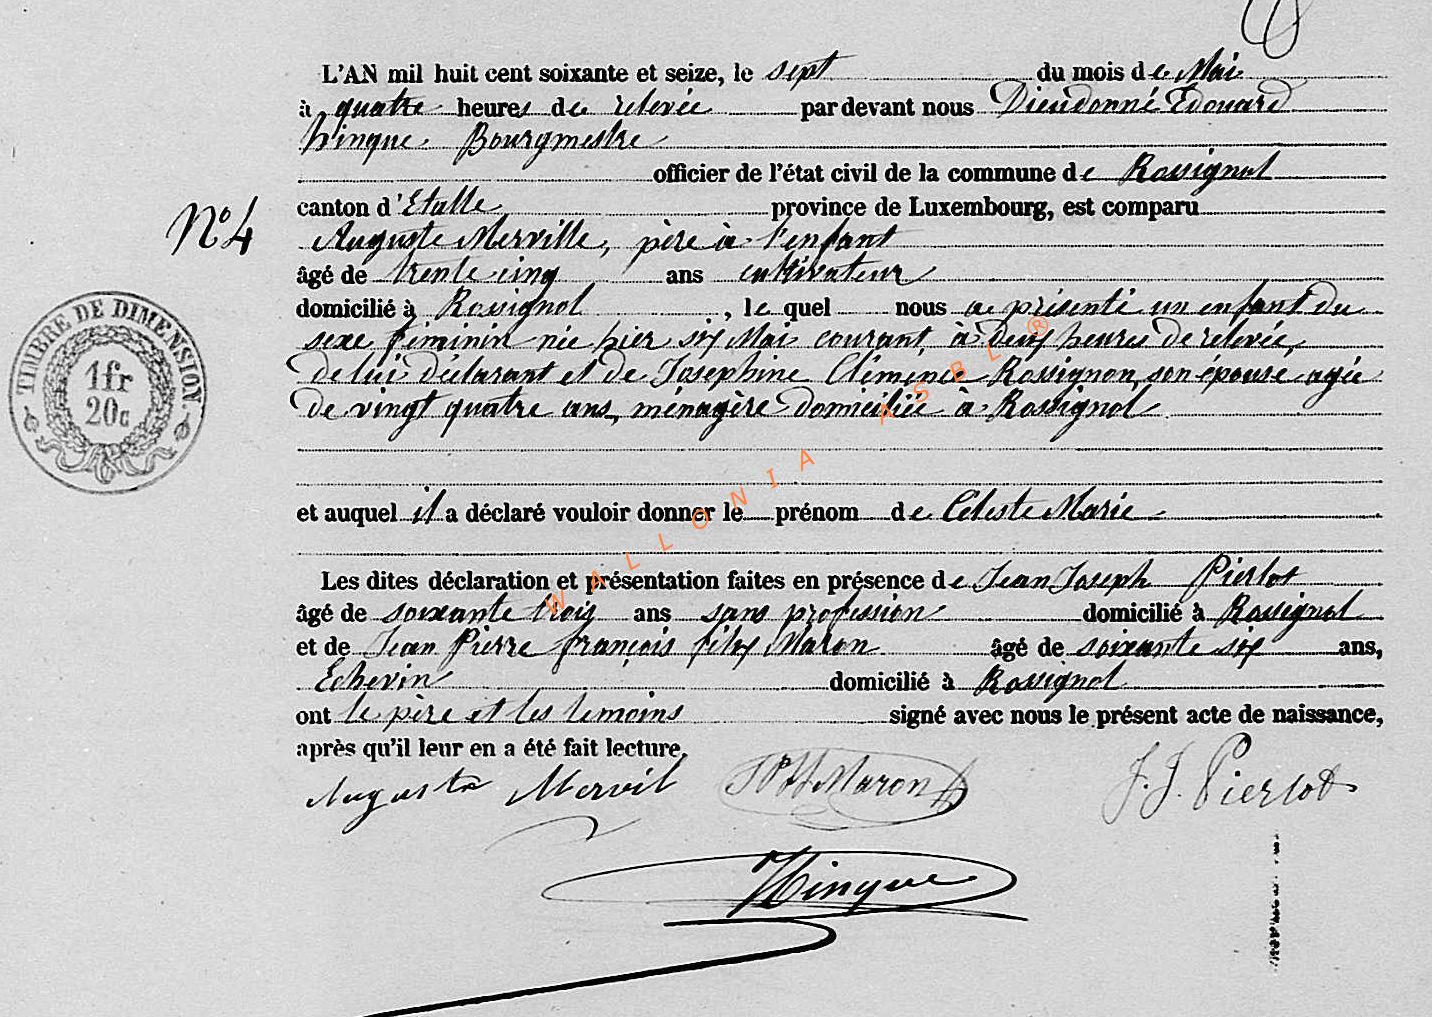 L'AN mil huit cent soixante et seize, le sept du mois de Mai
à quatre heures de relevée par devant nous Dieudonné Edouard
hinque Bourgmestre
officier de l'état civil de la commune de Rossignol
N° 4
canton d'Etalle province de Luxembourg, est comparu
Auguste Merville, père à l'enfant
âgé de trente cinq ans cultivateur
domicilié à Rossignol, le quel nous a présenté un enfant du
sexe féminin née hier six Mai courant, à deux heures de relevée,
de lui déclarant et de Josephine Clémence Rossignon, son épouse agée
de vingt quatre ans, ménagère domiciliée à Rossignol
et auquel il a déclaré vouloir donner le prénom de Céleste Marie
Les dites déclaration et présentation faites en présence de Jean Joseph Pierlot
âgé de soixante trois ans sans profession domicilié à Rossignol
et de Jean Pierre françois félix Maron âgé de soixante six ans,
Echevin domicilié à Rossignol
ont le père et les témoins signé avec nous le présent acte de naissance,
après qu'il leur en a été fait lecture.
Auguste Mervil Maron J. J. Pierlot
Hinque
TIMBRE DE DIMENSION
1fr
20c
WALLONIA ASBL ®